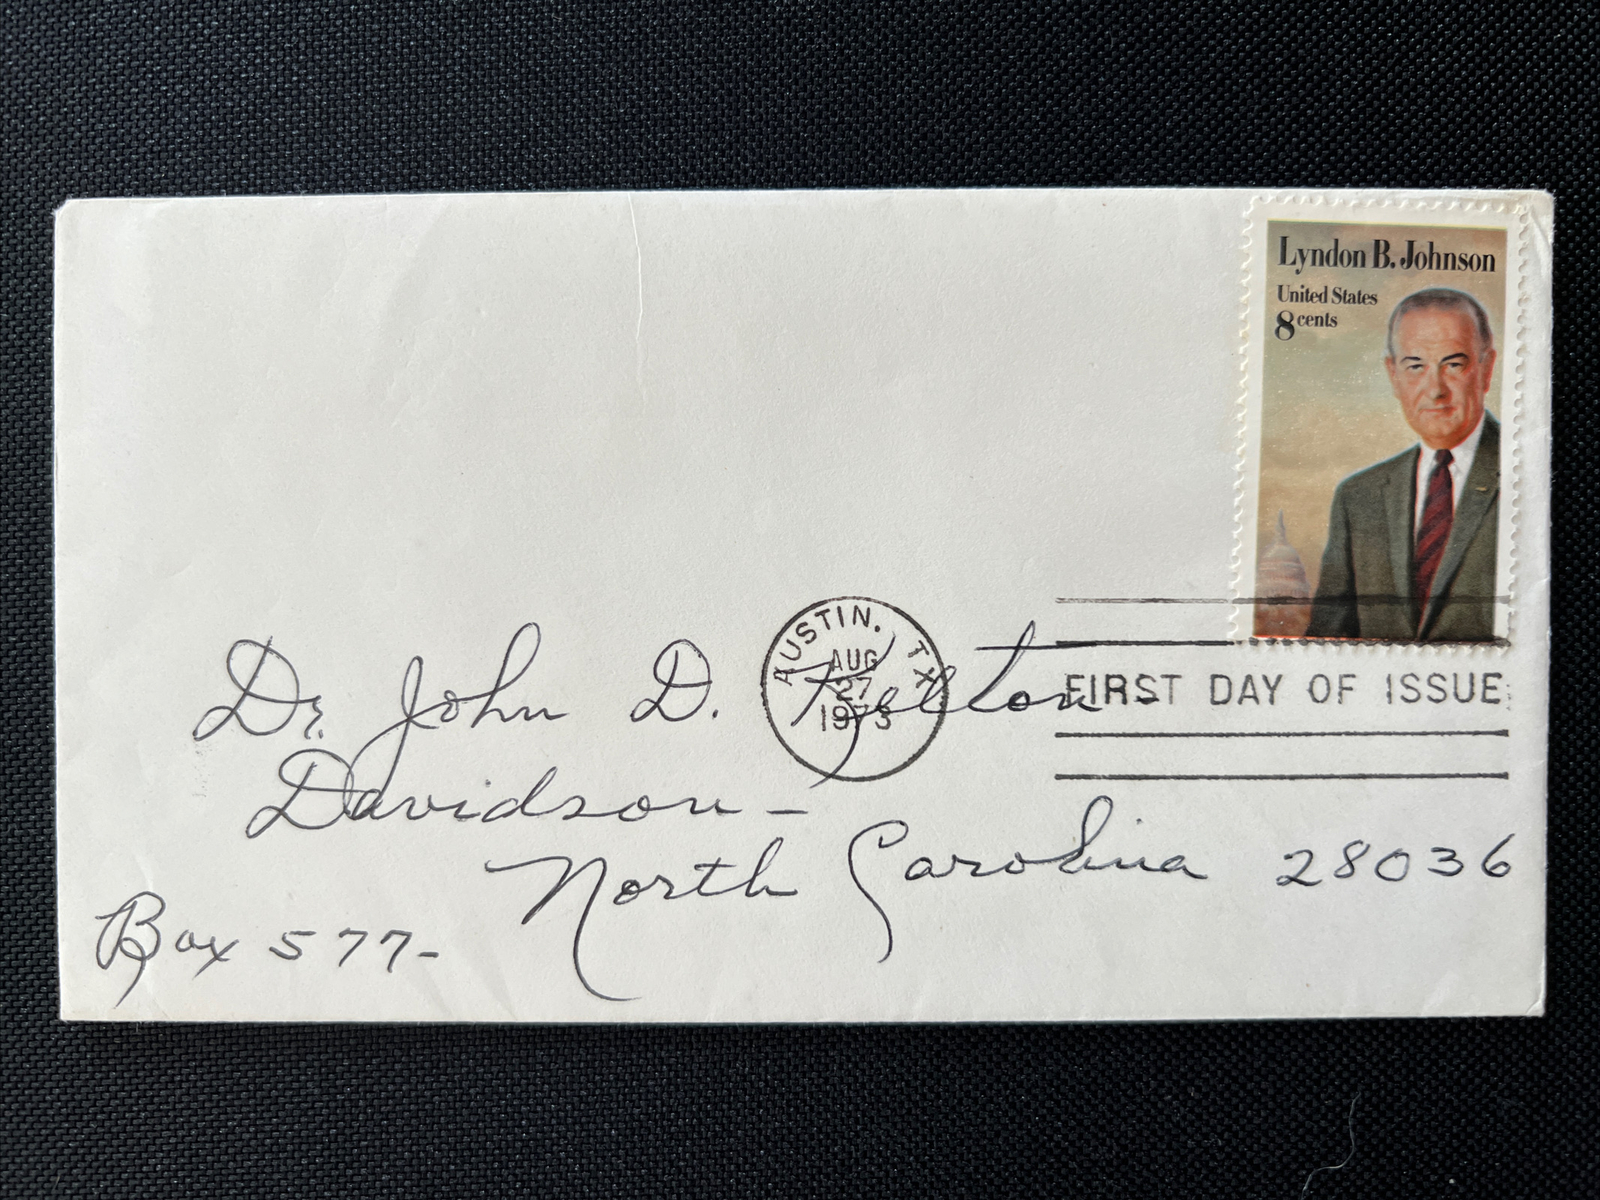 Lyndon B. Johnson
United States
8 cents
AUSTIN, TX
AUG
27
1973
FIRST DAY OF ISSUE
Dr. John D. Kelton
Davidson -
North Carolina 28036
Box 577-